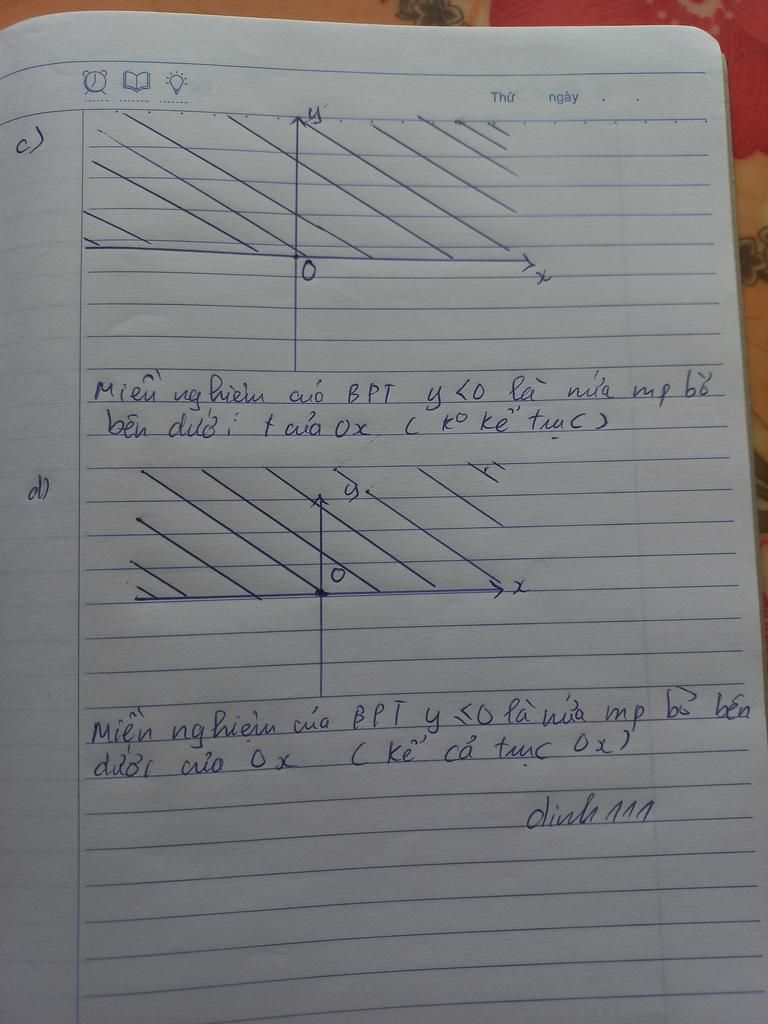 Thứ ngày . .
c)
y
O
x
Miền nghiệm củả BPT y < 0 là nửa mp bờ
bên dưới t của Ox ( ko kể trục )
d)
y
O
x
Miền nghiệm của BPT y ≤ 0 là nửa mp bờ bên
dưới của Ox ( kể cả trục Ox )
dinh111